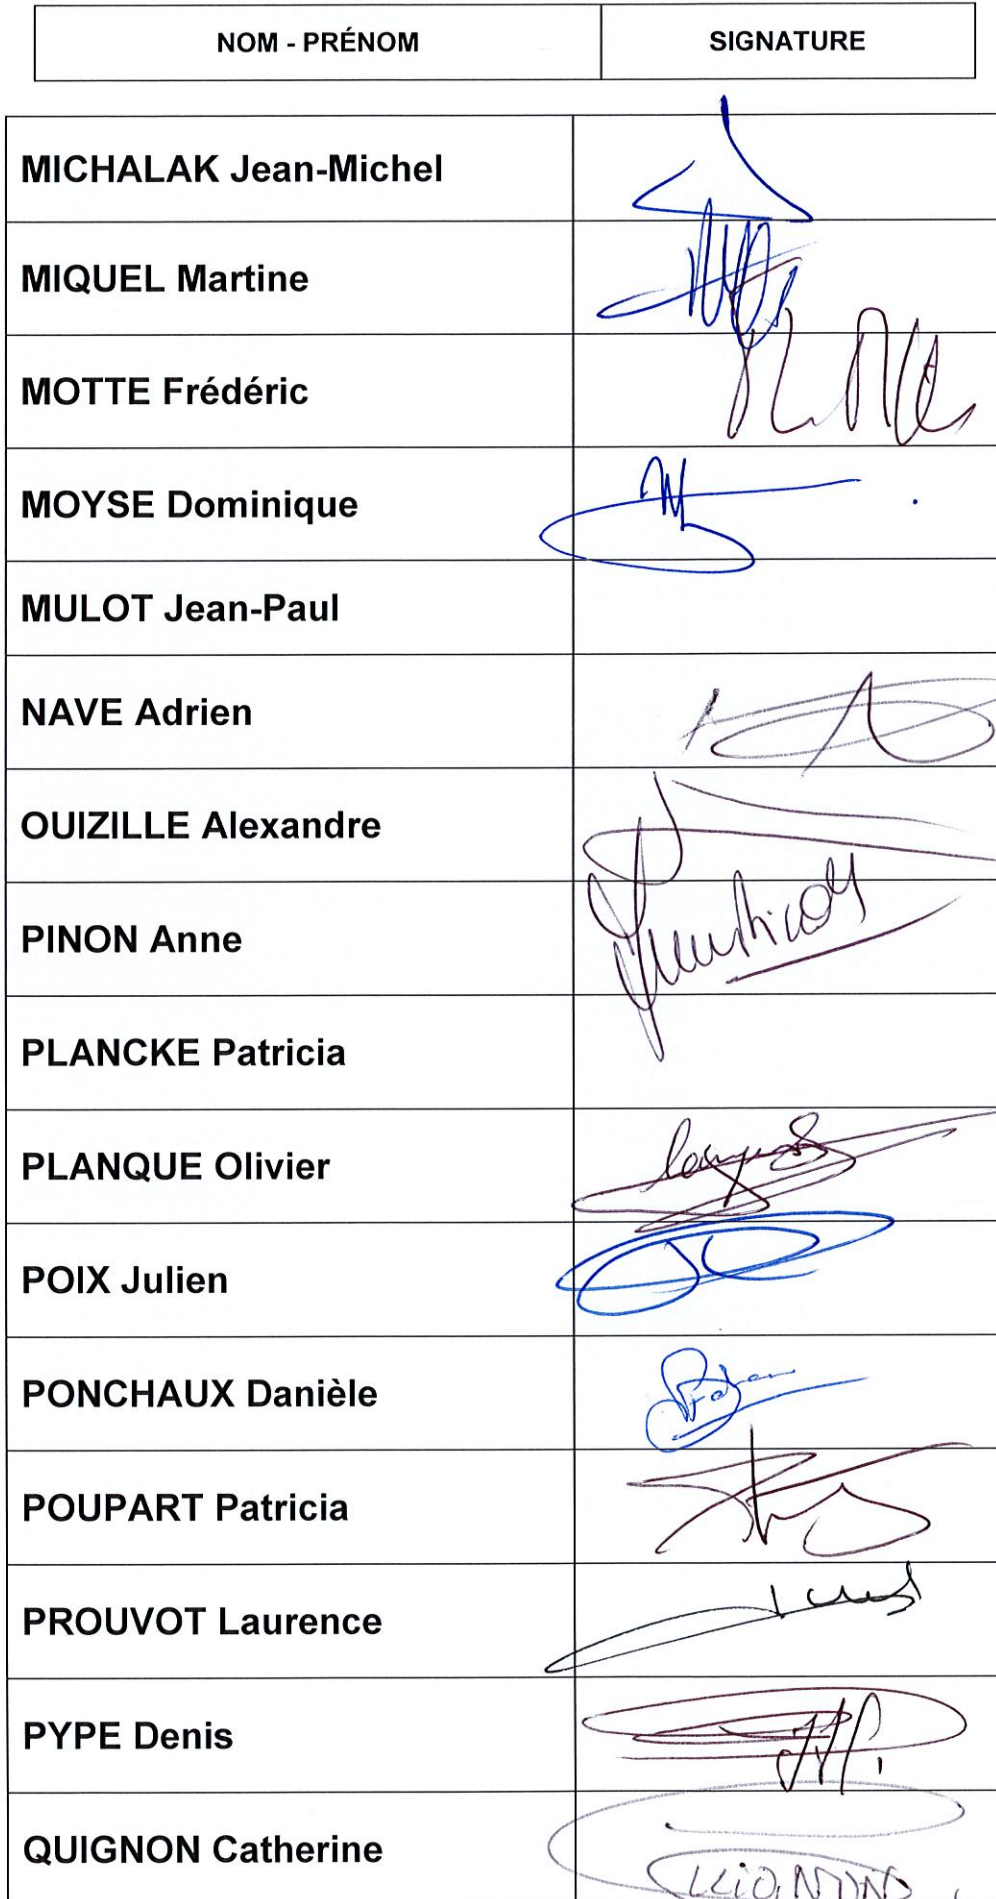 NOM - PRÉNOM SIGNATURE
MICHALAK Jean-Michel
MIQUEL Martine
MOTTE Frédéric
MOYSE Dominique
MULOT Jean-Paul
NAVE Adrien
OUIZILLE Alexandre
PINON Anne
PLANCKE Patricia
PLANQUE Olivier
POIX Julien
PONCHAUX Danièle
POUPART Patricia
PROUVOT Laurence
PYPE Denis
QUIGNON Catherine